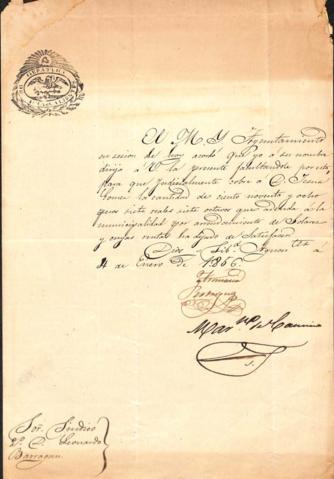 El M. Y. Ayuntamiento
en sesion de hoy acordó que yo a su nombre
dirija á V. la presente facultandole por esta,
para que judicialmente cobre a D. Jesus
Gomez la cantidad de ciento noventa y ocho
pesos siete reales siete octavos que adeuda á la
municipalidad por arrendamiento de Solares
y cuyas rentas ha dejado de Satisfacer
Dios y Lib.
4 de Enero de 1866.
Sor. Sindico
D. Leonardo
Barragan.